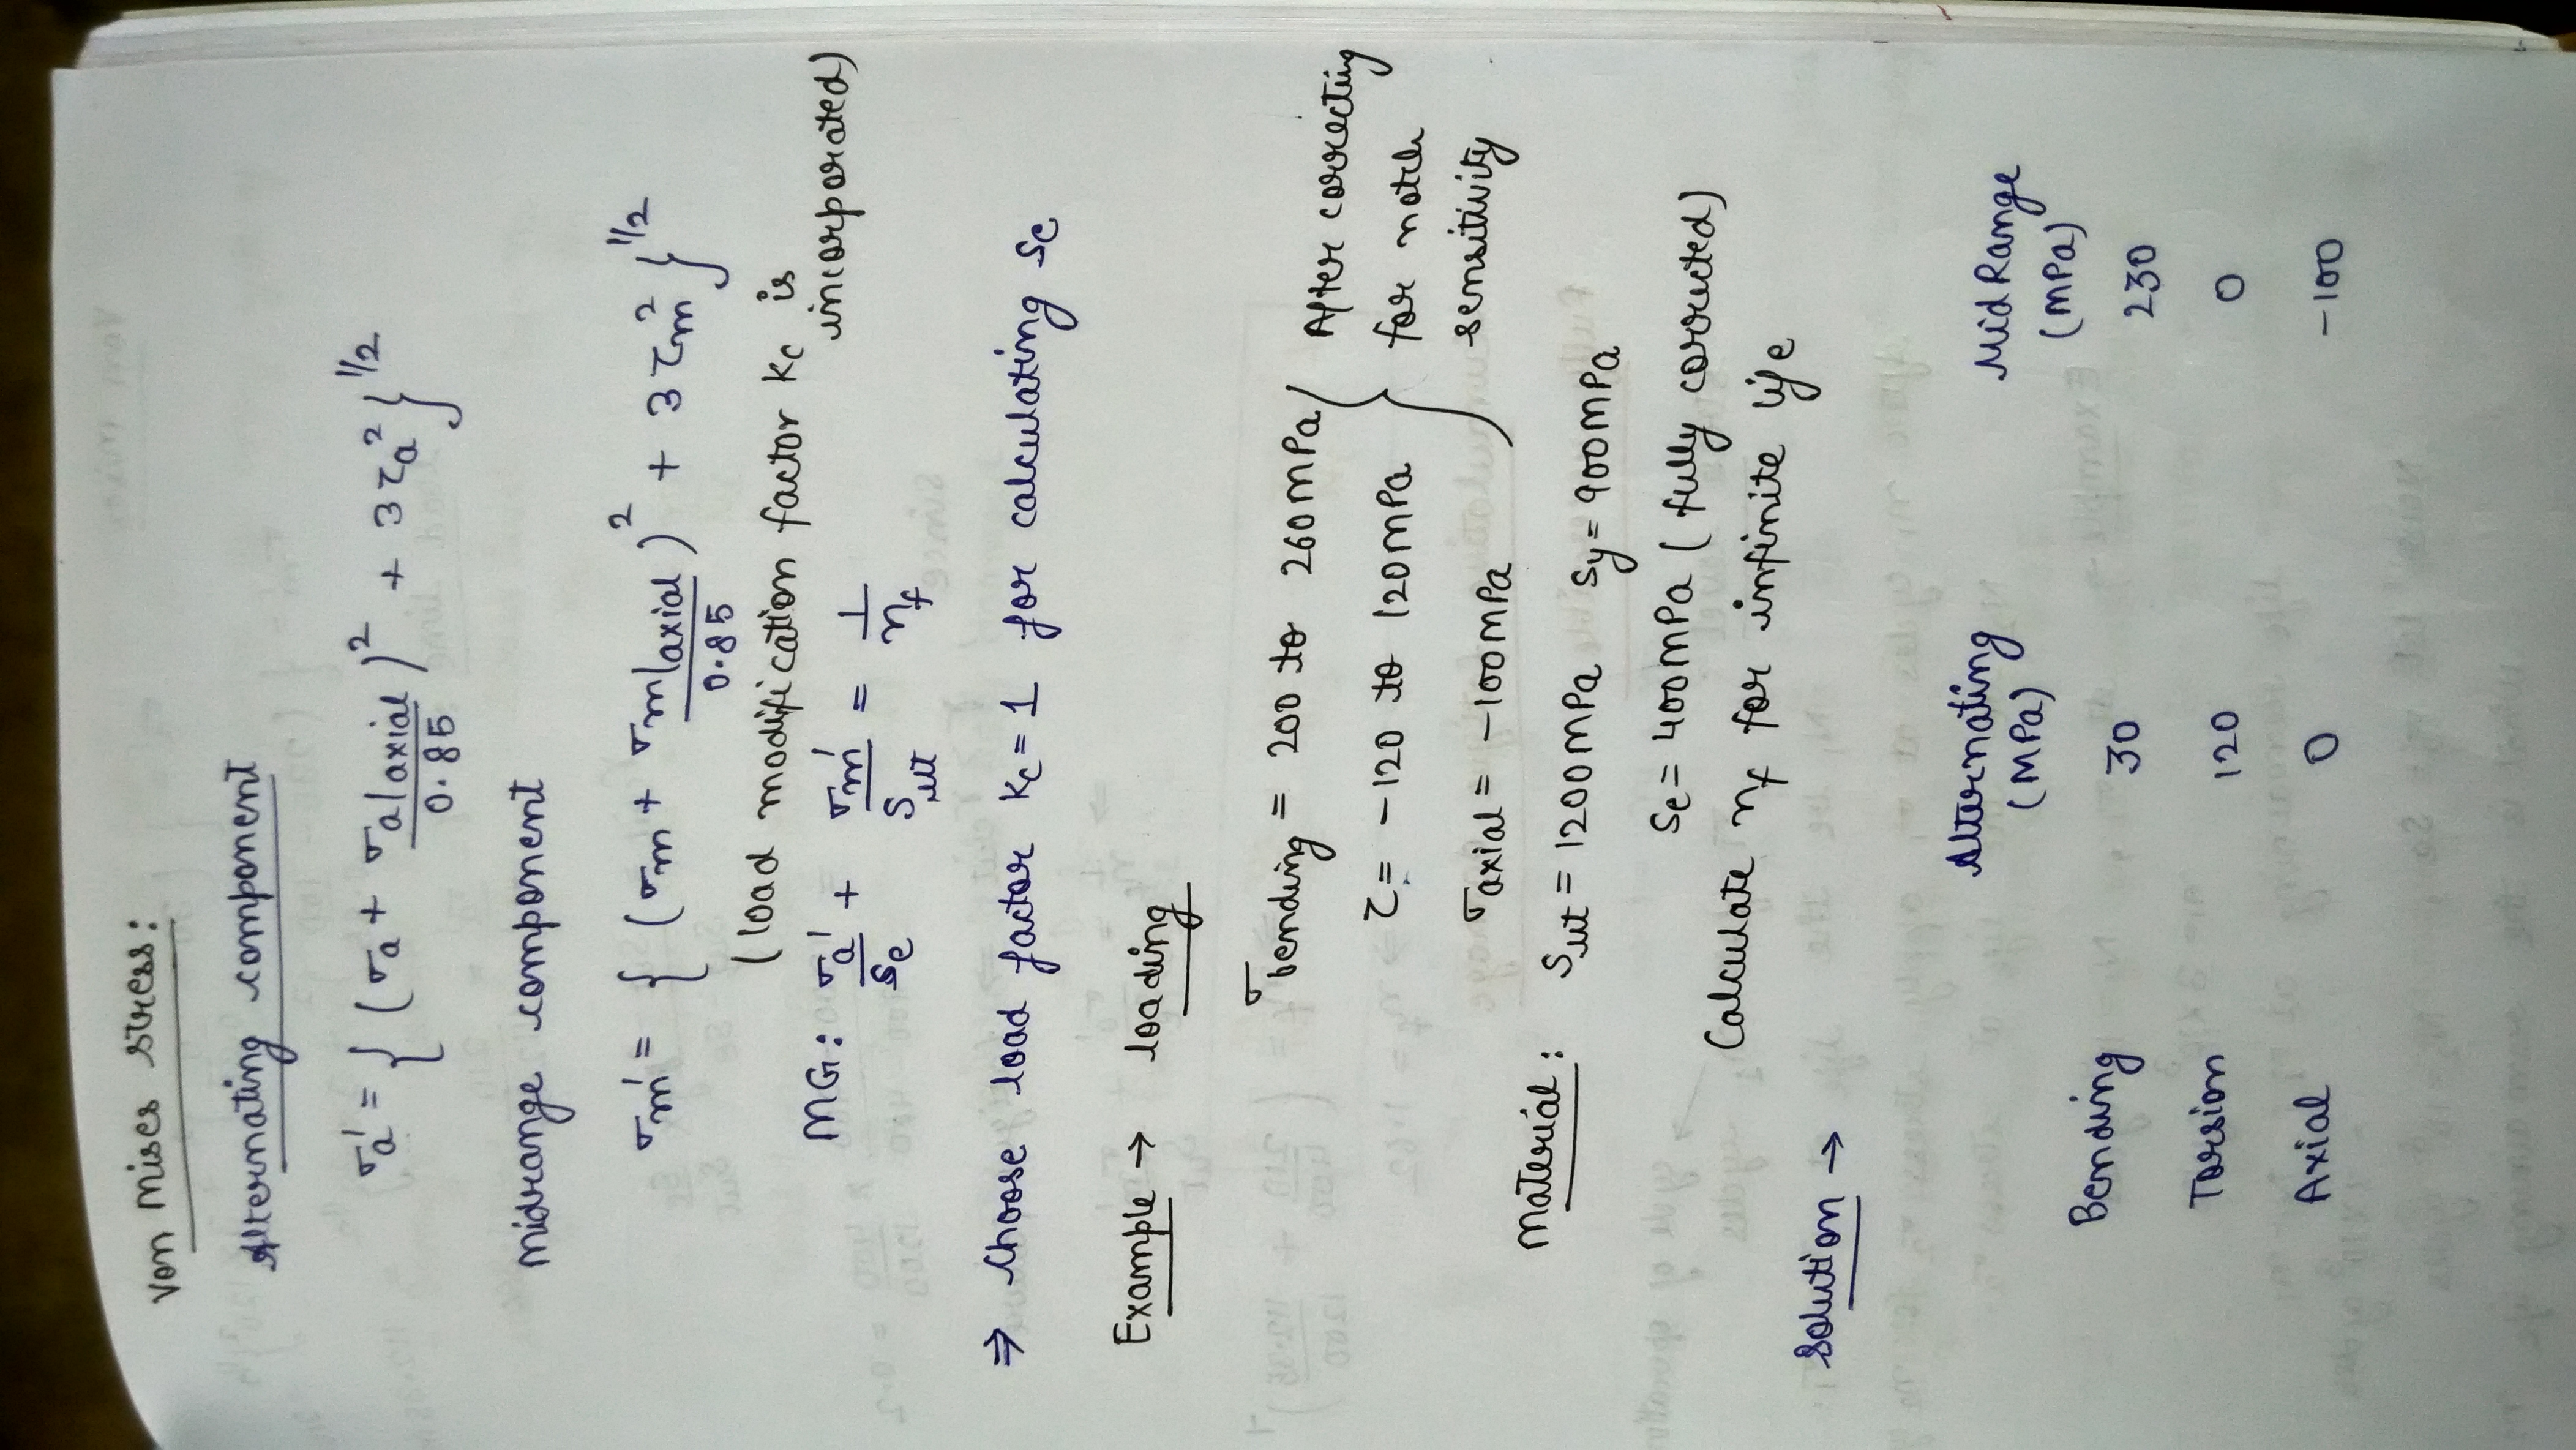 Von Mises stress:
Alternating component
σa' = { (σa + σa|axial / 0.85)² + 3τa² }^1/2
Midrange component
σm' = { (σm + σm|axial / 0.85)² + 3τm² }^1/2
(load modification factor kc is
incorporated)
MG: σa'/Se + σm'/Sut = 1/nf
⇒ Choose load factor kc = 1 for calculating Se
Example → loading
σbending = 200 to 260 MPa
τ = -120 to 120 MPa
σaxial = -100 MPa
} After correcting
for notch
sensitivity
Material: Sut = 1200 MPa Sy = 900 MPa
Se = 400 MPa (fully corrected)
Calculate nf for infinite life
Solution →
Alternating (MPa) MidRange (MPa)
Bending 30 230
Torsion 120 0
Axial 0 -100